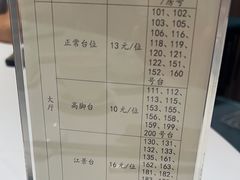 /房号
101、102、
103、105、
106、116、
正常台位 13元/位 118、119、
120、121、
151、152、
160
号台
111、112、
113、115、
大厅
高脚台 10元/位 153、155、
156、158、
159、199、
200号台
130、131、
132、133、
135、161、
江景台 16元/位